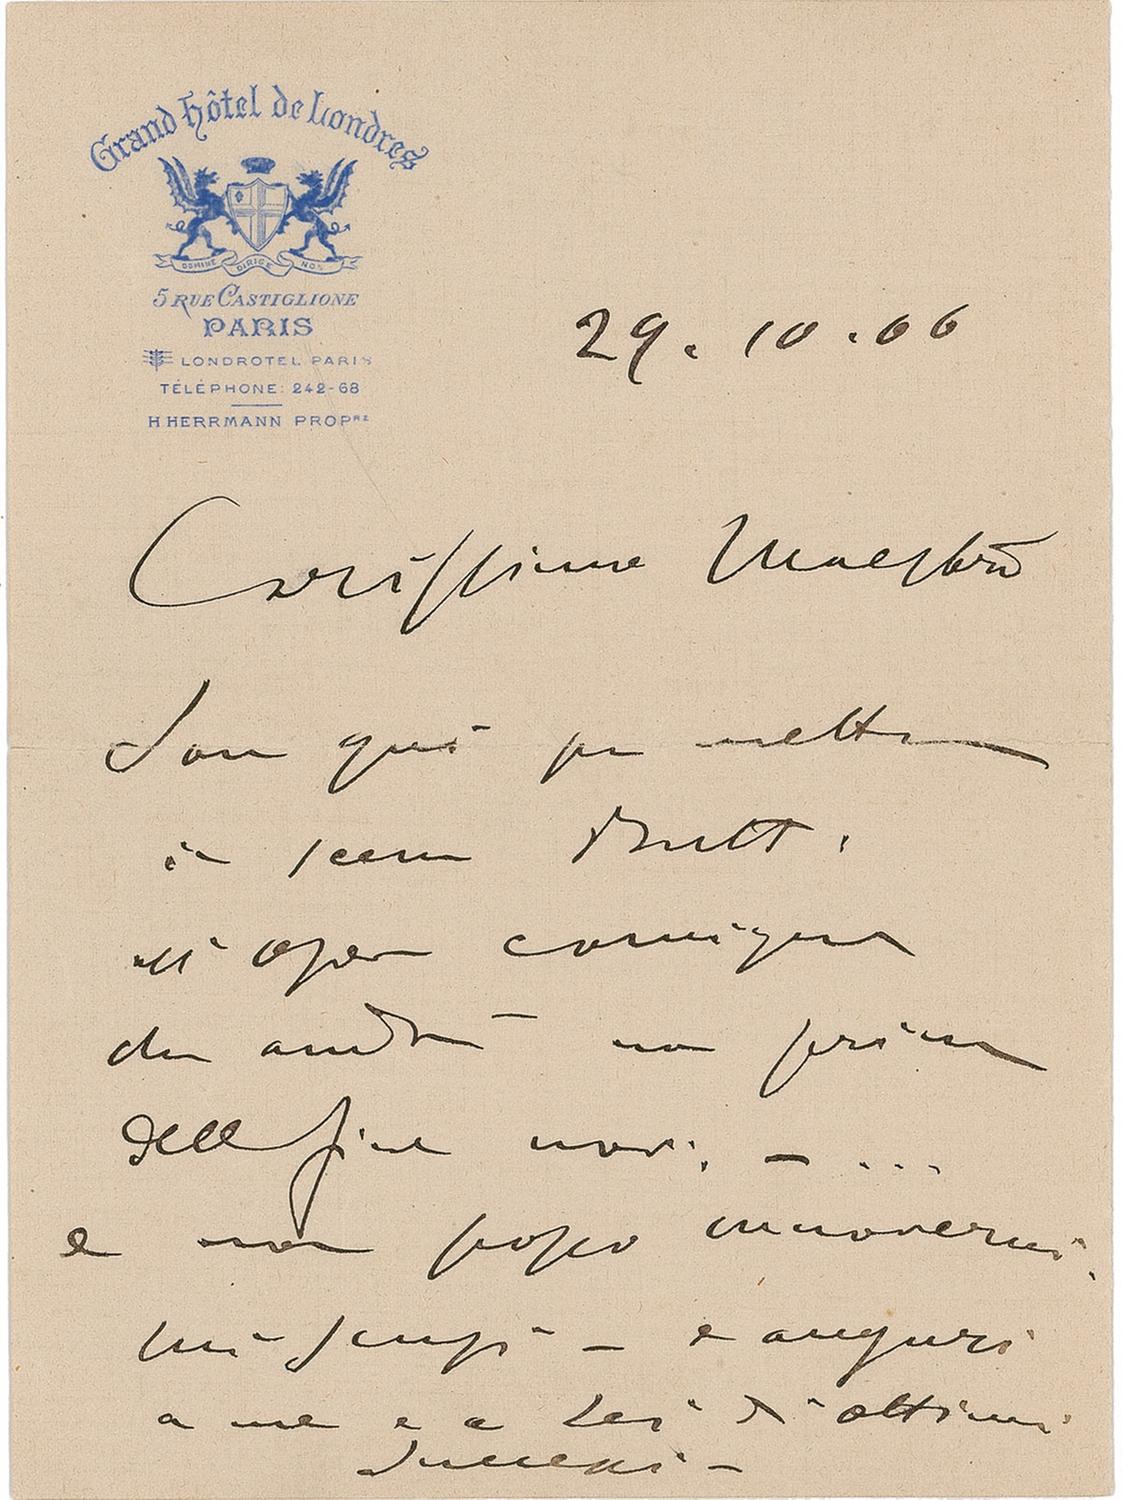 Grand Hôtel de Londres
DOMINE DIRIGE NOS
5 RUE CASTIGLIONE
PARIS
LONDROTEL PARIS
TÉLÉPHONE: 242-68
H HERRMANN PROPRE
29. 10. 06
Carissimo Maestro
Son qui per mettere
in scena Butt.
all'Opera comique
che andrà non prima
della fine nov. – ...
e non posso muovermi.
mi scusi – e auguri
a me e a Lei di ottimi
successi –